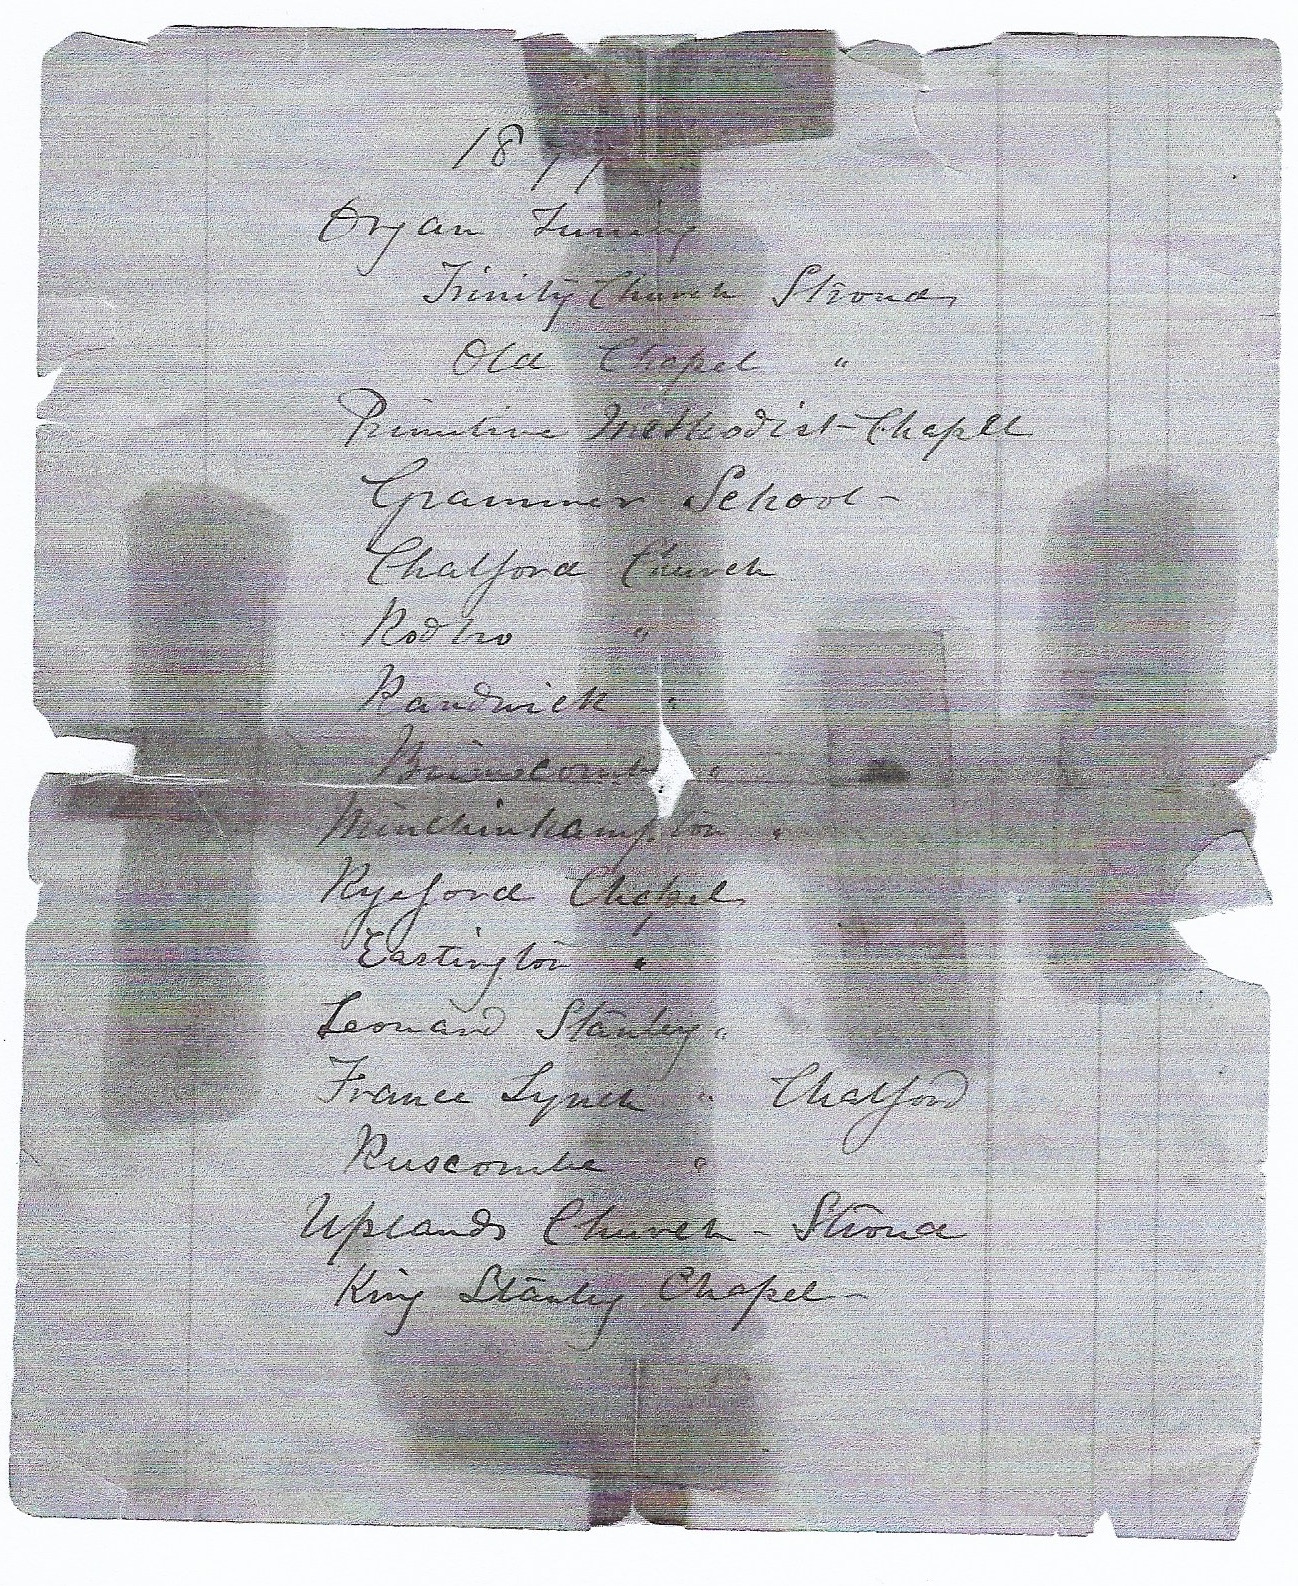 1877
Organ Tuning
Trinity Church Stroud
Old Chapel "
Primitive Methodist Chapel
Grammer School -
Chalford Church
Rodbro "
Randwick "
Brimscombe "
Minchinhampton "
Ryeford Chapel
Eastington "
Leonard Stanley "
France Lynch " Chalford
Ruscombe "
Uplands Church - Stroud
King Stanley Chapel -